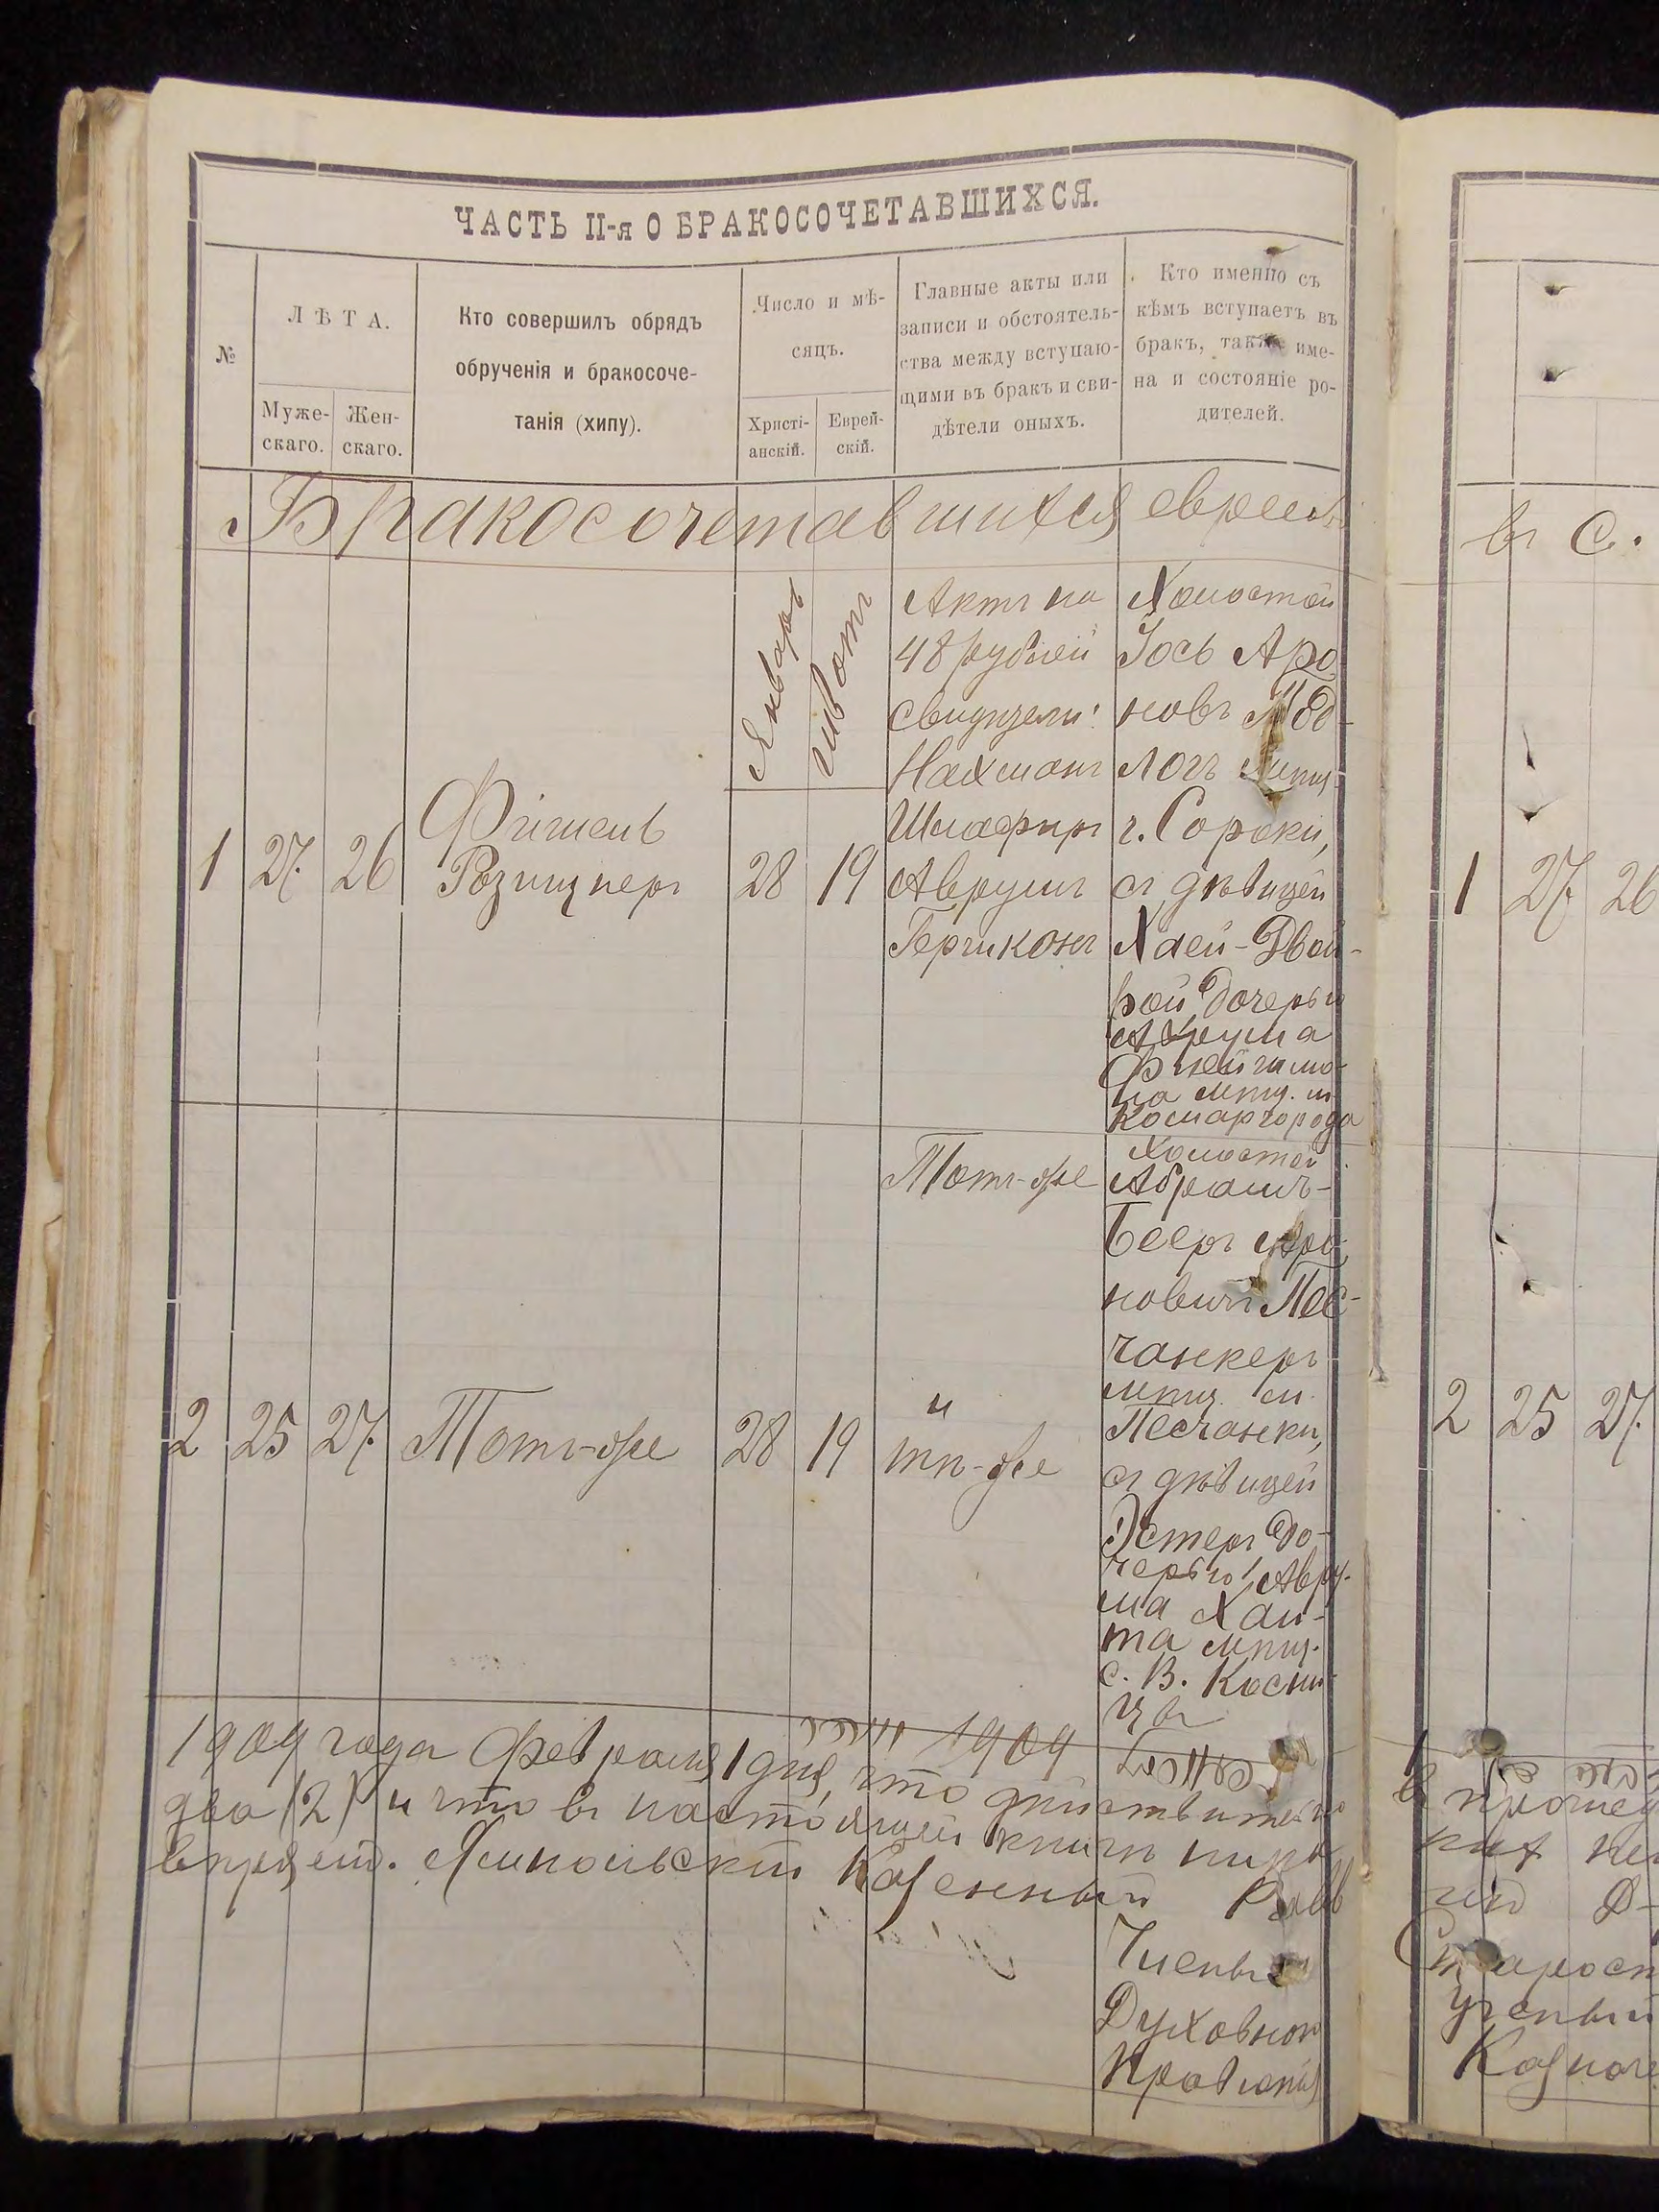 ЧАСТЬ II-я О БРАКОСОЧЕТАВШИХСЯ.
№
ЛѢТА.
Муже-
скаго.
Жен-
скаго.
Кто совершилъ обрядъ
обрученія и бракосоче-
танія (хипу).
Число и мѣ-
сяцъ.
Христі-
анскій.
Еврей-
скій.
Главные акты или
записи и обстоятель-
ства между вступаю-
щими въ бракъ и сви-
дѣтели оныхъ.
Кто именно съ
кѣмъ вступаетъ въ
бракъ, также име-
на и состояніе ро-
дителей.
Бракосочетавшихся евреевъ
въ С.
1
27
26
Фишель
Розищнеръ
Январь
28
Швотъ
19
Актъ на
48 рублей
свидѣтели:
Нахманъ
Шмафиръ
Аврумъ
Гершконъ
Холостой
Іось Аро
новъ
логъ мѣщ.
г. Сороки,
съ дѣвицей
Хаей-Двой-
рой дочерью
Аврума
мѣщ. м.
Комаргорода
1 27 26
2
25
27
Тотъ-же
28
19
Тотъ-же
и
тѣ-же
Холостой
Абрамъ-
Бееръ Аро-
новичъ Пес-
чанкеръ
мѣщ. м.
Песчанки,
съ дѣвицей
Эстеръ до-
черью Авру-
ма Хаи-
та мѣщ.
с. В. Косни-
цы
2 25 27
1909 года Февраля 1 дня, что дѣйствительно
два (2) и что въ настоящей книгѣ
Ямпольскій Казенный Равв
Члены
Духовнаго
Правленія